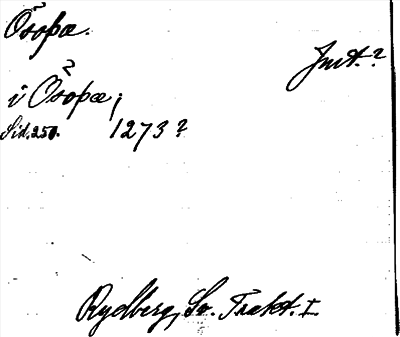 Ösopa.
Jmt.?
i Ösopa;
Sid. 250. 1273?
Rydberg, Sv. Trakt. I.